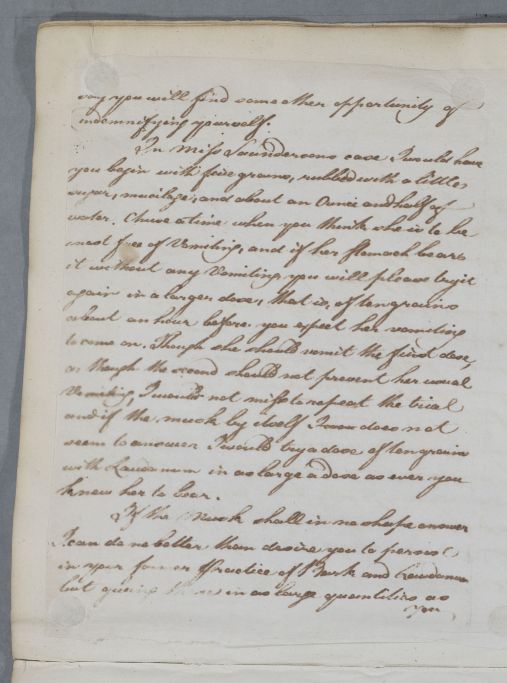 way you will find some other opportunity of
indemnifying yourself.
In Miss Saundersons case I would have
you begin with five grains, rubbed with a little
sugar, mucilage, and about an Ounce and half of
water. Chuse a time when you think she is to be
most free of Vomiting, and if her stomach bears
it without any Vomiting, you will please try it
again in a larger dose, that is, of ten grains
about an hour before you expect her vomiting
to come on. Though she should vomit the first dose,
or though the second should not prevent her usual
Vomiting, I would not miss to repeat the trial
and if the musk by itself given does not
seem to answer I would try a dose of ten grains
with Laudanum in as large a dose as ever you
knew her to bear.
If the Musk shall in no shape answer
I can do no better than desire you to persist
in your former Practice of Bark and Laudanum
but giving them in as large quantities as
you